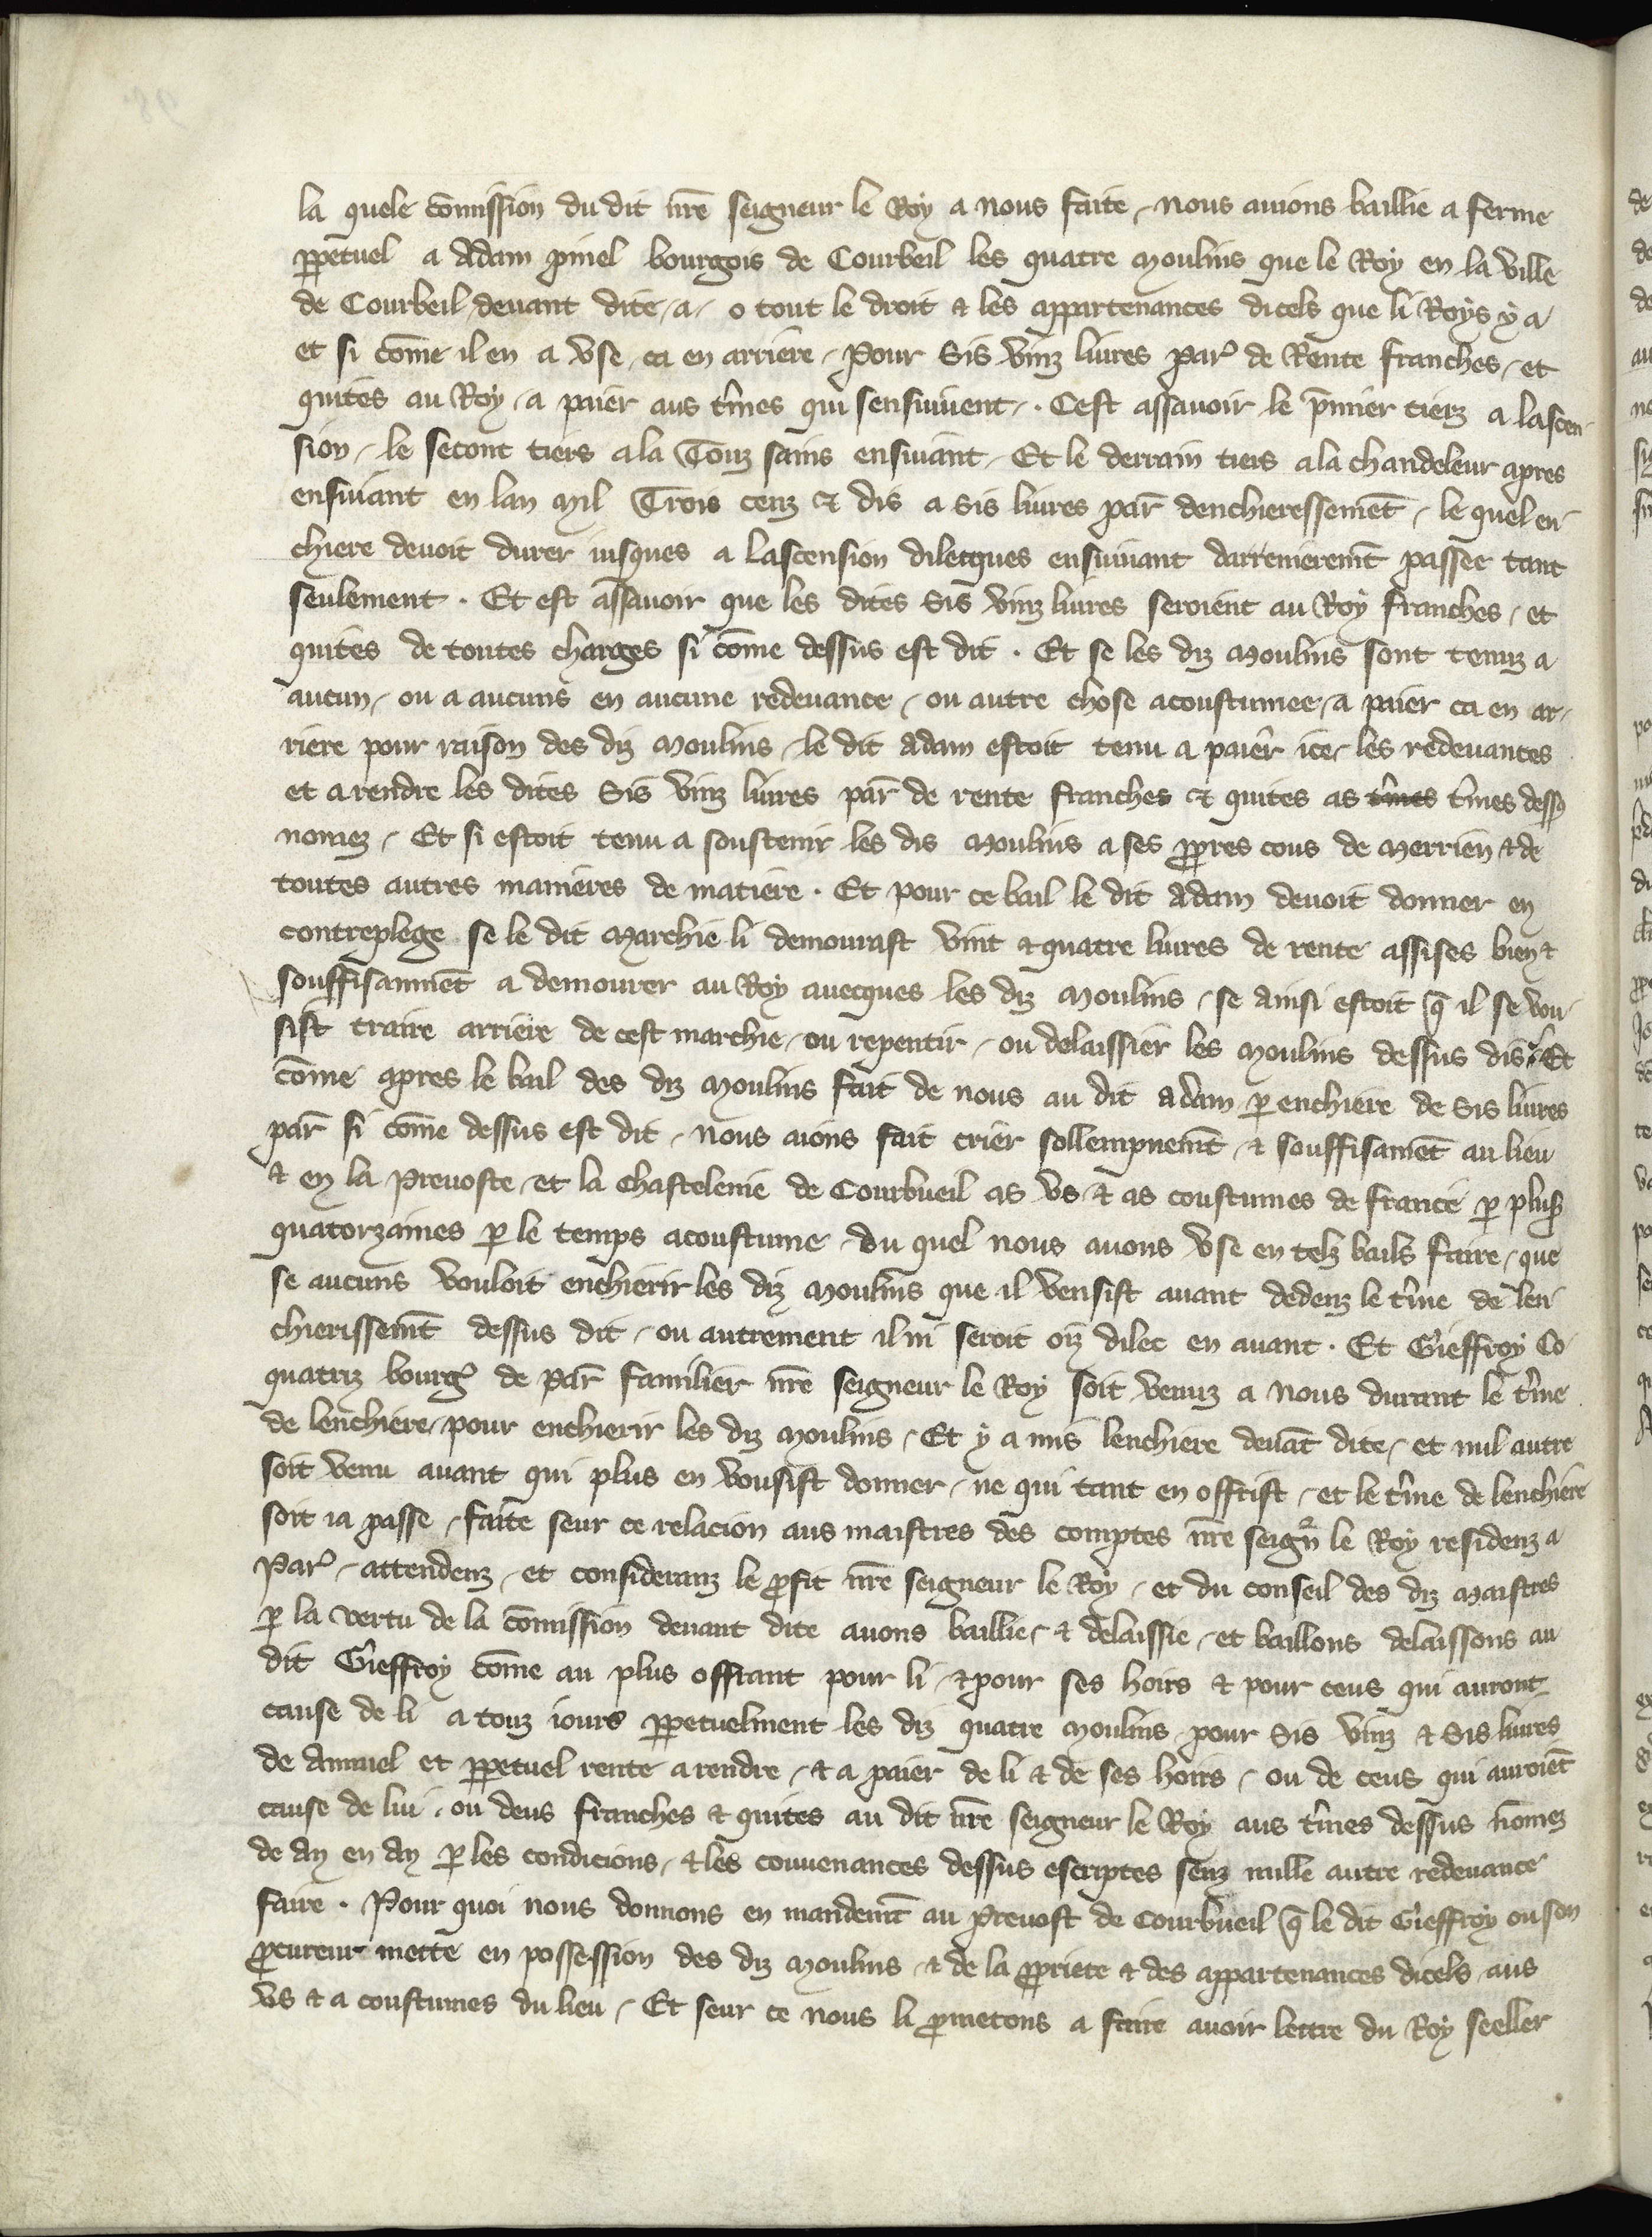 la quele co̅mission du dit nr̅e seigneur le Roy a nous faite / nous auions baillie a ferme
p̱petuel a Adam pinel bourgois de Courbeil les quatre moulins que le Roy en la ville
de Courbeil deuant dite / a / o tout le droit & les appartenances dicels que li Roys y a
et si co̅me il en a vse ca en arriere / pour Sis vinz liures par̉ de Rente franches / et
quites au Roy / a paier aus t̉mes qui sensuiuent / . Cest assauoir le p̅mier tierz a lascen
sion / le secont tiers a la Touz sains ensiuant / Et le derrain tiers a la chandeleur apres
ensiuant en lan mil Trois cenz & dis a sis liures par̅ dencheressemēt / le quel en
chiere deuoit durer iusques a Lascension dilecques ensuiuant darrenieremt̅ passee tant
seulement . Et est assauoir que les dites Sis vinz liures seroient au Roy franches / et
quites de toutes charges si co̅me dessus est dit . Et se les diz moulins sont tenuz a
aucun / ou a aucuns en aucune redeuance / ou autre chose acoustumee / a paier ca en ar
riere pour raison des diz moulins / le dit Adam estoit tenu a paier ice les redeuances
et a rendre les dites Sis vinz liures par̅ de rente franches & quites as t̉mes t̉mes dess9
nomez / Et si estoit tenu a soustenir les dis moulins a ses ꝓpres cous de merrien & de
toutes autres manieres de matiere . Et pour ce bail le dit Adam deuoit donner en
contreplege se le dit marchie li demourast vint & quatre liures de rente assises bien &
souffisanmēt a demourer au Roy auecques les diz moulins / se ainsi estoit q̅ il se vou
sist traire arriere de cest marchie / ou repentir / ou delaissier les moulins dessus dis / Et
co̅me apres le bail des diz moulins fait de nous au dit Adam ꝑ enchiere de sis liures
par̅ si co̅me dessus est dit / nous aions fait crier sollempnemt̅ & souffisamēt au lieu
& en la preuoste / et la chastelenie de Courbueil as vs & as coustumes de france ꝑ plus̉
quatorzaines ꝑ le temps acoustume / du quel nous auons vse en telz bails faire / que
se aucuns vouloit enchierir les diz moulins que il vensist auant dedenz le t̉me de len
chierissemt̅ dessus dit / ou autrement il ni seroit oiz dilec en auant . Et Gieffroy Co
quatriz bourg̉ de par̅ familier nr̅e seigneur le Roy soit venuz a nous durant le t̉me
de lenchiere / pour enchierir les diz moulins / Et y a mis lenchiere deuāt dite / et nul autre
soit venu auant qui plus en vousist donner / ne qui tant en offrist / et le t̉me de lenchiere
soit ia passe / faite seur ce relacion aus maistres des comptes nr̅e seign̉ le Roy residenz a
Par̉ / attendenz / et consideranz le ꝓfit nr̅e seigneur le Roy / et du conseil des diz maistres
ꝑ la vertu de la co̅mission deuant dite auons baillie / & delaissie / et baillons delaissons au
dit Gieffroy co̅me au plus offrant pour li / & pour ses hoirs & pour ceus qui auront
cause de li a touz iours p̱petuelment les diz quatre moulins pour Sis vinz & Sis liures
de annuel et p̱petuel rente a rendre / & a paier de li & de ses hoirs / ou de ceus qui auroiēt
cause de lui / ou deus franches & quites au dit nr̅e seigneur le Roy aus t̉mes dessus no̅mez
de an en an ꝑ les condicions / & les couuenances dessus escriptes senz nulle autre redeuance
faire . Pour quoi nous donnons en mandemt̅ au preuost de Courbueil q̅ le dit Gieffroy ou son
ꝓcureur mette en possession des diz moulins & de la ꝓpriete & des appartenances dicels aus
vs & a coustumes du lieu / Et seur ce nous li ꝓmetons a faire auoir lettre du Roy seeller